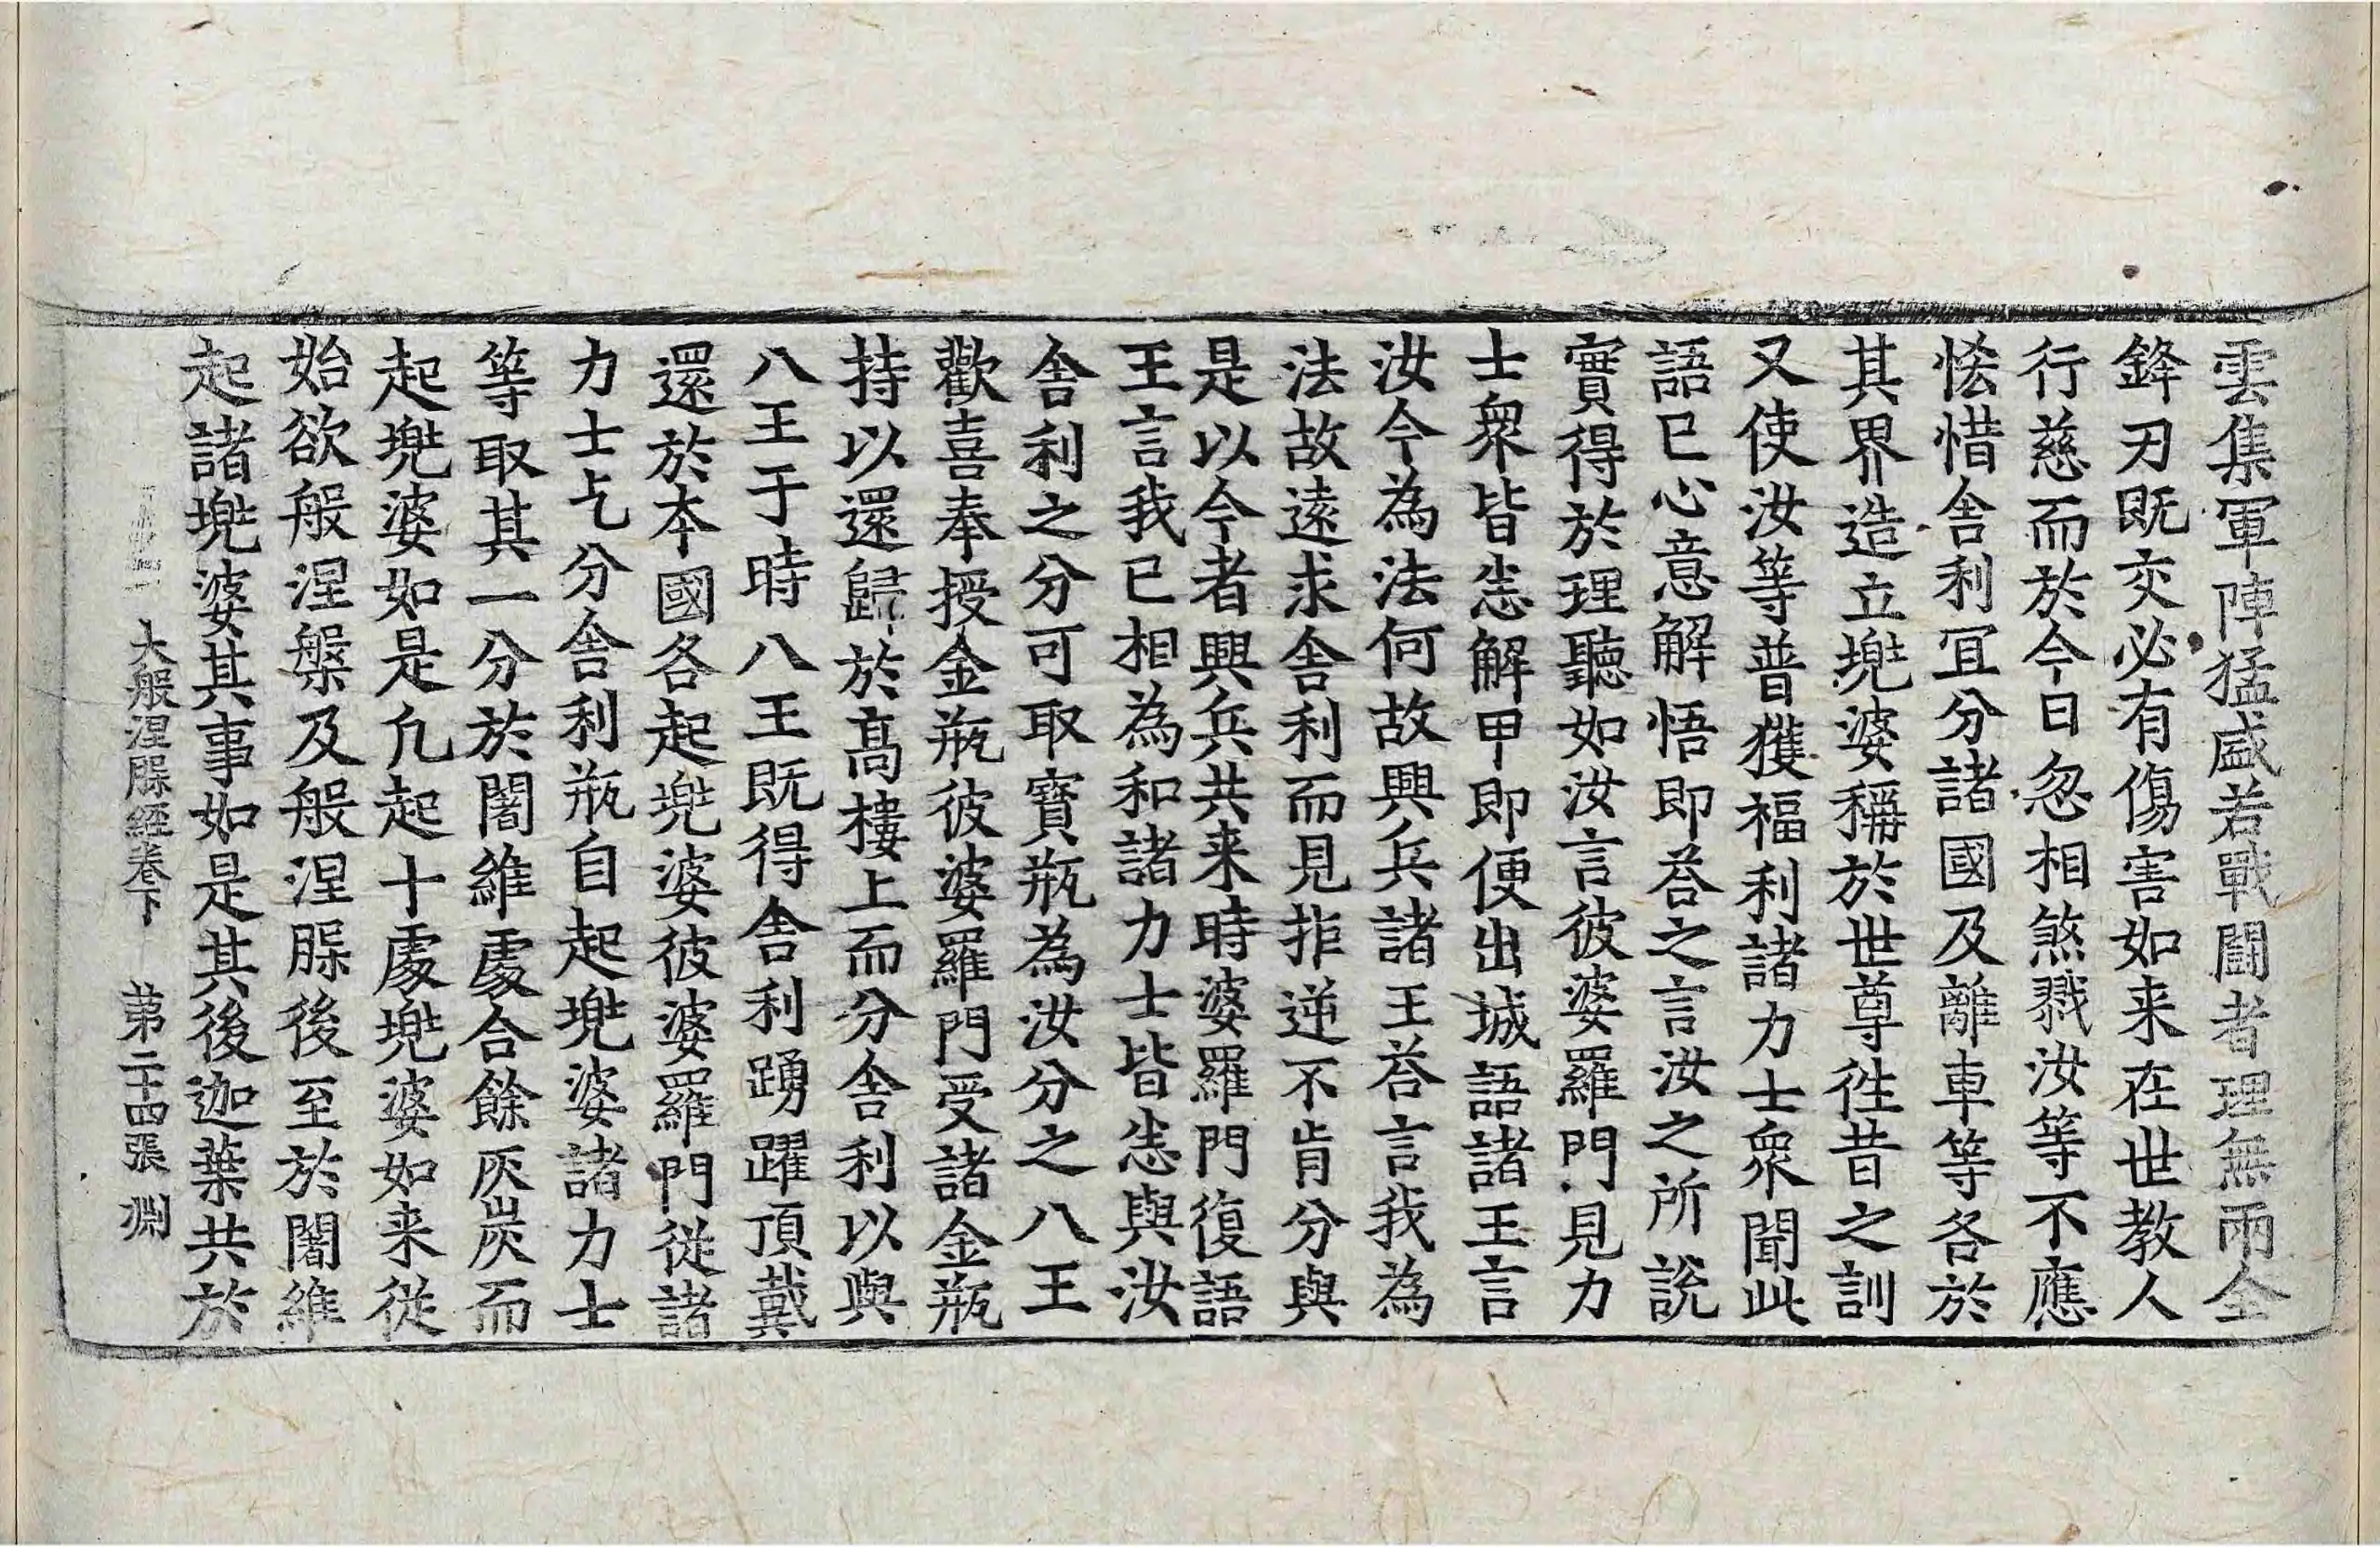 雲集軍陣猛盛若戰鬪者理無兩全
鋒刃既交必有傷害如来在世教人
行慈而於今日忽相煞戮汝等不應
恡惜舎利冝分諸國及離車等各於
其界造立兠婆稱於世尊徃昔之訓
又使汝等普獲福利諸力士衆聞此
語已心意解悟即荅之言汝之所說
實得於理聽如汝言彼婆羅門見力
士衆皆悉解甲即便出城語諸王言
汝今為法何故興兵諸王荅言我為
法故遠求舎利而見拒逆不肯分與
是以今者興兵共来時婆羅門復語
王言我已相為和諸力士皆悉與汝
舎利之分可取寳瓶為汝分之八王
歡喜奉授金瓶彼婆羅門受諸金瓶
持以還歸於髙樓上而分舎利以與
八王于時八王既得舎利踴躍頂戴
還於本國各起兠婆彼婆羅門從諸
力士乞分舎利瓶自起兠婆諸力士
等取其一分於闍維處合餘灰炭而
起兠婆如是凡起十處兠婆如来従
始欲般涅槃及般涅槃後至於闍維
起諸兠婆其事如是其後迦葉共於
大般涅槃經卷下 第二十四張 淵